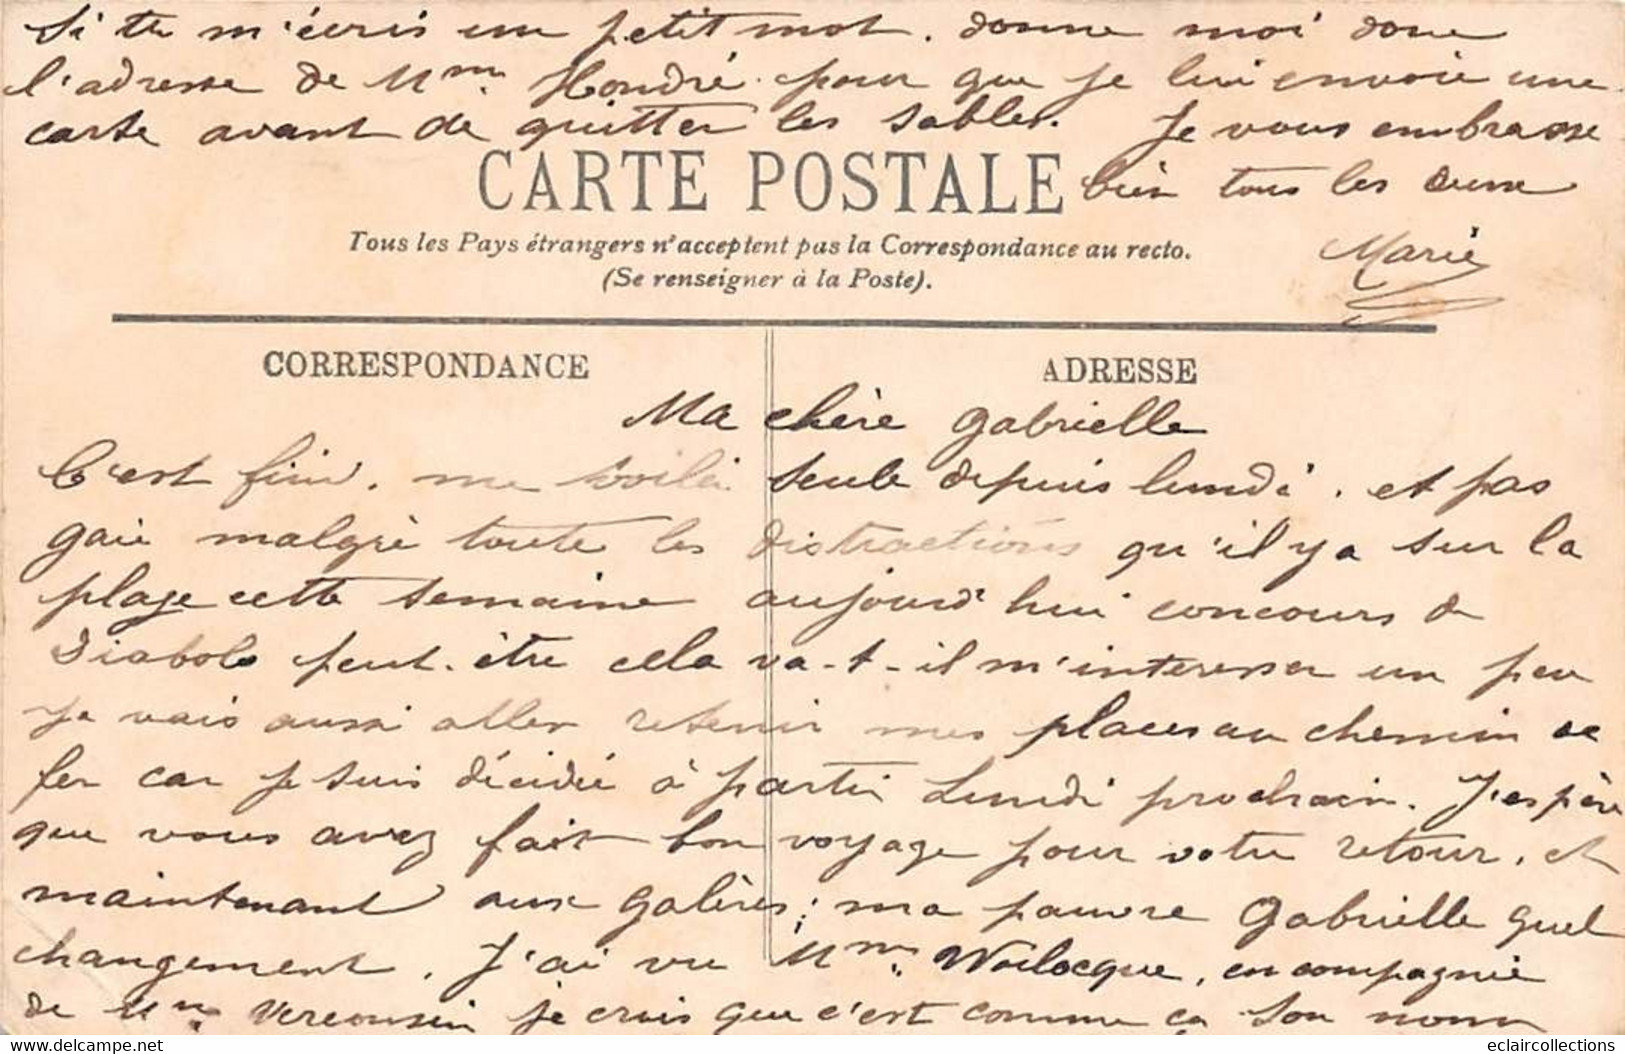 Si tu m'écris un petit mot. donne moi donc
l'adresse de Mme Hondré. pour que je lui envoie une
carte avant de quitter les Sables. Je vous embrasse
CARTE POSTALE bien tous les deux
Tous les Pays étrangers n'acceptent pas la Correspondance au recto.
(Se renseigner à la Poste).
Marie
CORRESPONDANCE
ADRESSE
Ma chère Gabrielle
C'est fini. me voilà seule depuis lundi. et pas
gaie malgré toute les distractions qu'il y a sur la
plage cette semaine aujourd'hui concours de
Diabolo peut-être cela va-t-il m'interesser un peu
Je vais aussi aller retenir mes places au chemin de
fer car je suis décidée à partir Lundi prochain. J'espère
que vous avez fait bon voyage pour votre retour. et
maintenant aux galères; ma pauvre Gabrielle quel
changement. J'ai vu Mme Wailocque, en compagnie
de Mme je crois que c'est comme ça son nom
delcampe.net
eclaircollections